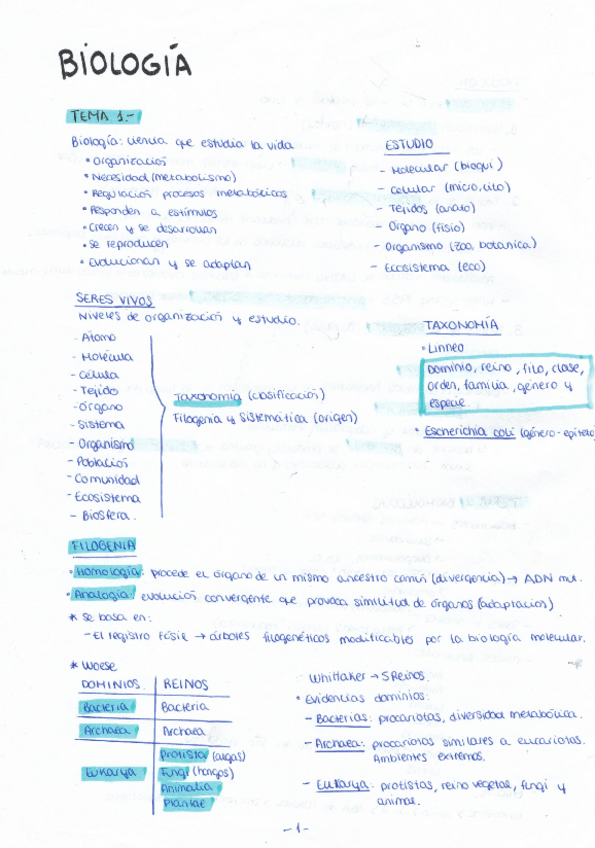 BIOLOGÍA
TEMA 1.-
Biología: ciencia que estudia la vida
• Organización
• Necesidad (metabolismo)
• Regulación procesos metabólicos
• Responden a estímulos
• Crecen y se desarrollan
• Se reproducen
• Evolucionan y se adaptan
ESTUDIO
- Molecular (bioquí)
- Celular (micro, cito)
- Tejidos (anato)
- Órgano (fisio)
- Organismo (zoo, botanica)
- Ecosistema (eco)
SERES VIVOS
Niveles de organización y estudio.
- Átomo
- Molécula
- Célula
- Tejido
- Órgano
- Sistema
- Organismo
- Población
- Comunidad
- Ecosistema
- Biosfera.
Taxonomía (clasificación)
Filogenia y Sistemática (origen)
TAXONOMÍA
• Linneo
Dominio, reino, filo, clase,
orden, familia, género y
especie.
• Escherichia coli (género-epíteto
FILOGENIA
• Homología: procede el órgano de un mismo ancestro común (divergencia) → ADN mit.
• Analogía: evolución convergente que provoca similitud de órganos (adaptación)
* Se basa en:
- El registro fósil → árboles filogenéticos modificables por la biología molecular.
* Woese
DOMINIOS REINOS
Bacteria Bacteria
Archaea Archaea
Eukarya Protista (algas)
Fungi (hongos)
Animalia
Plantae
Whittaker → 5 Reinos.
• Evidencias dominios:
- Bacterias: procariotas, diversidad metabólica.
- Archaea: procariotas similares a eucariotas.
Ambientes extremos.
- Eukarya: protistas, reino vegetal, fungi y
animal.
-1-